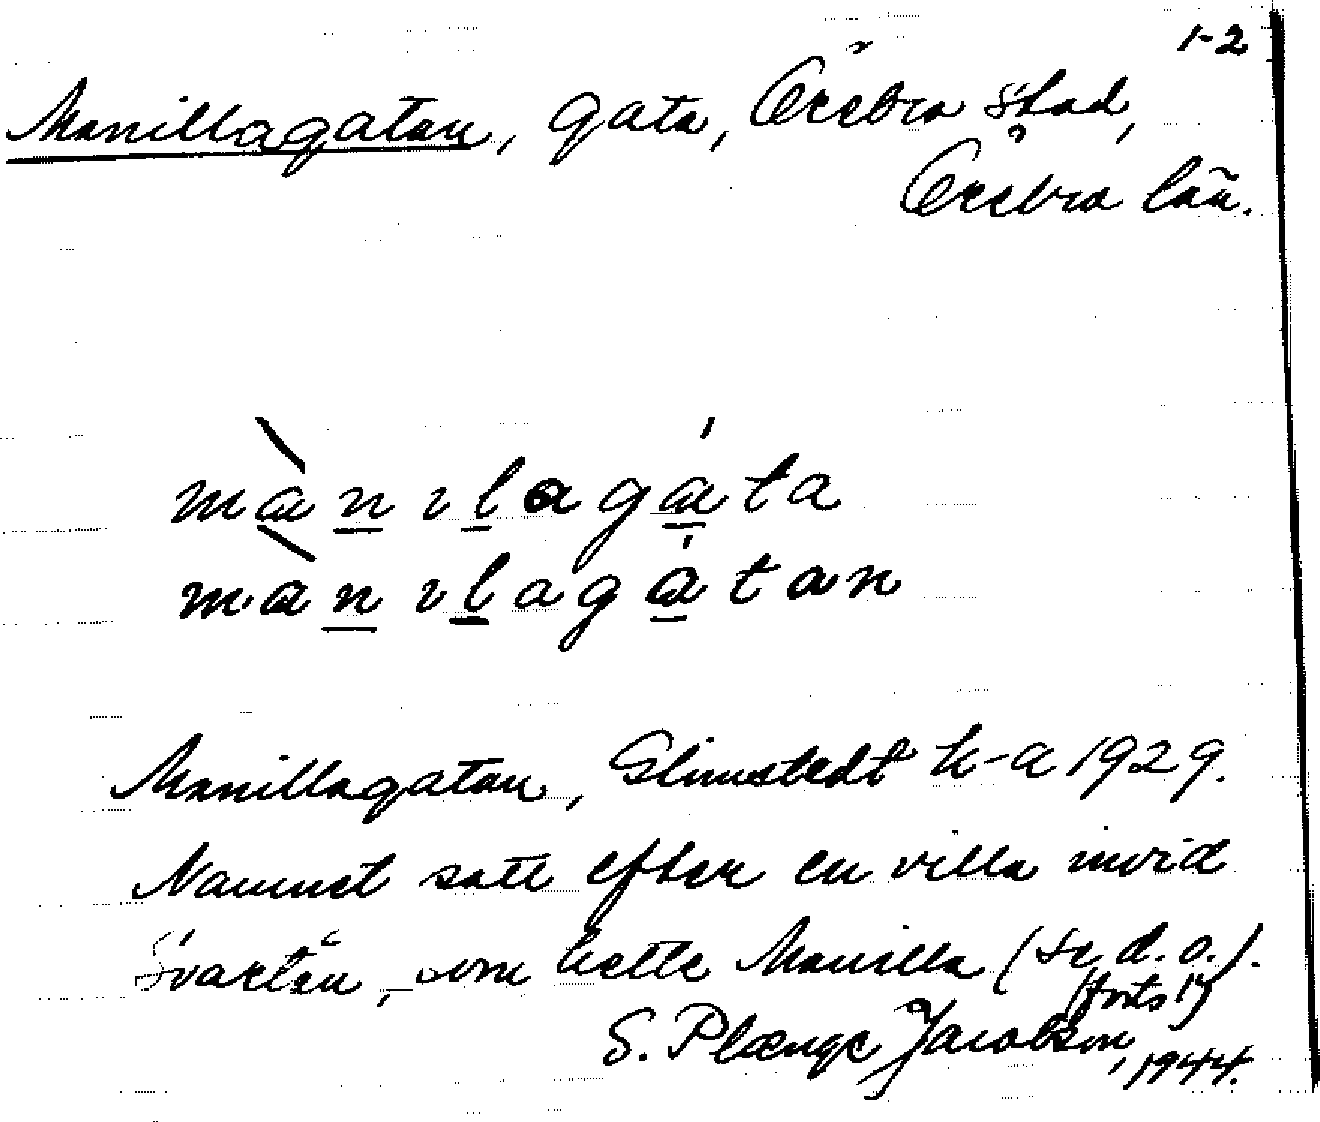 1-2
Manillagatan, gata, Örebro stad,
Örebro län.
mànılagáta
mànılagátan
Manillagatan, Glimstedt k-a 1929.
Namnet satt efter en villa invid
Svartån, som hette Manilla (se d. o.).
(forts 1)
S. Plænge Jacobson, 1944.